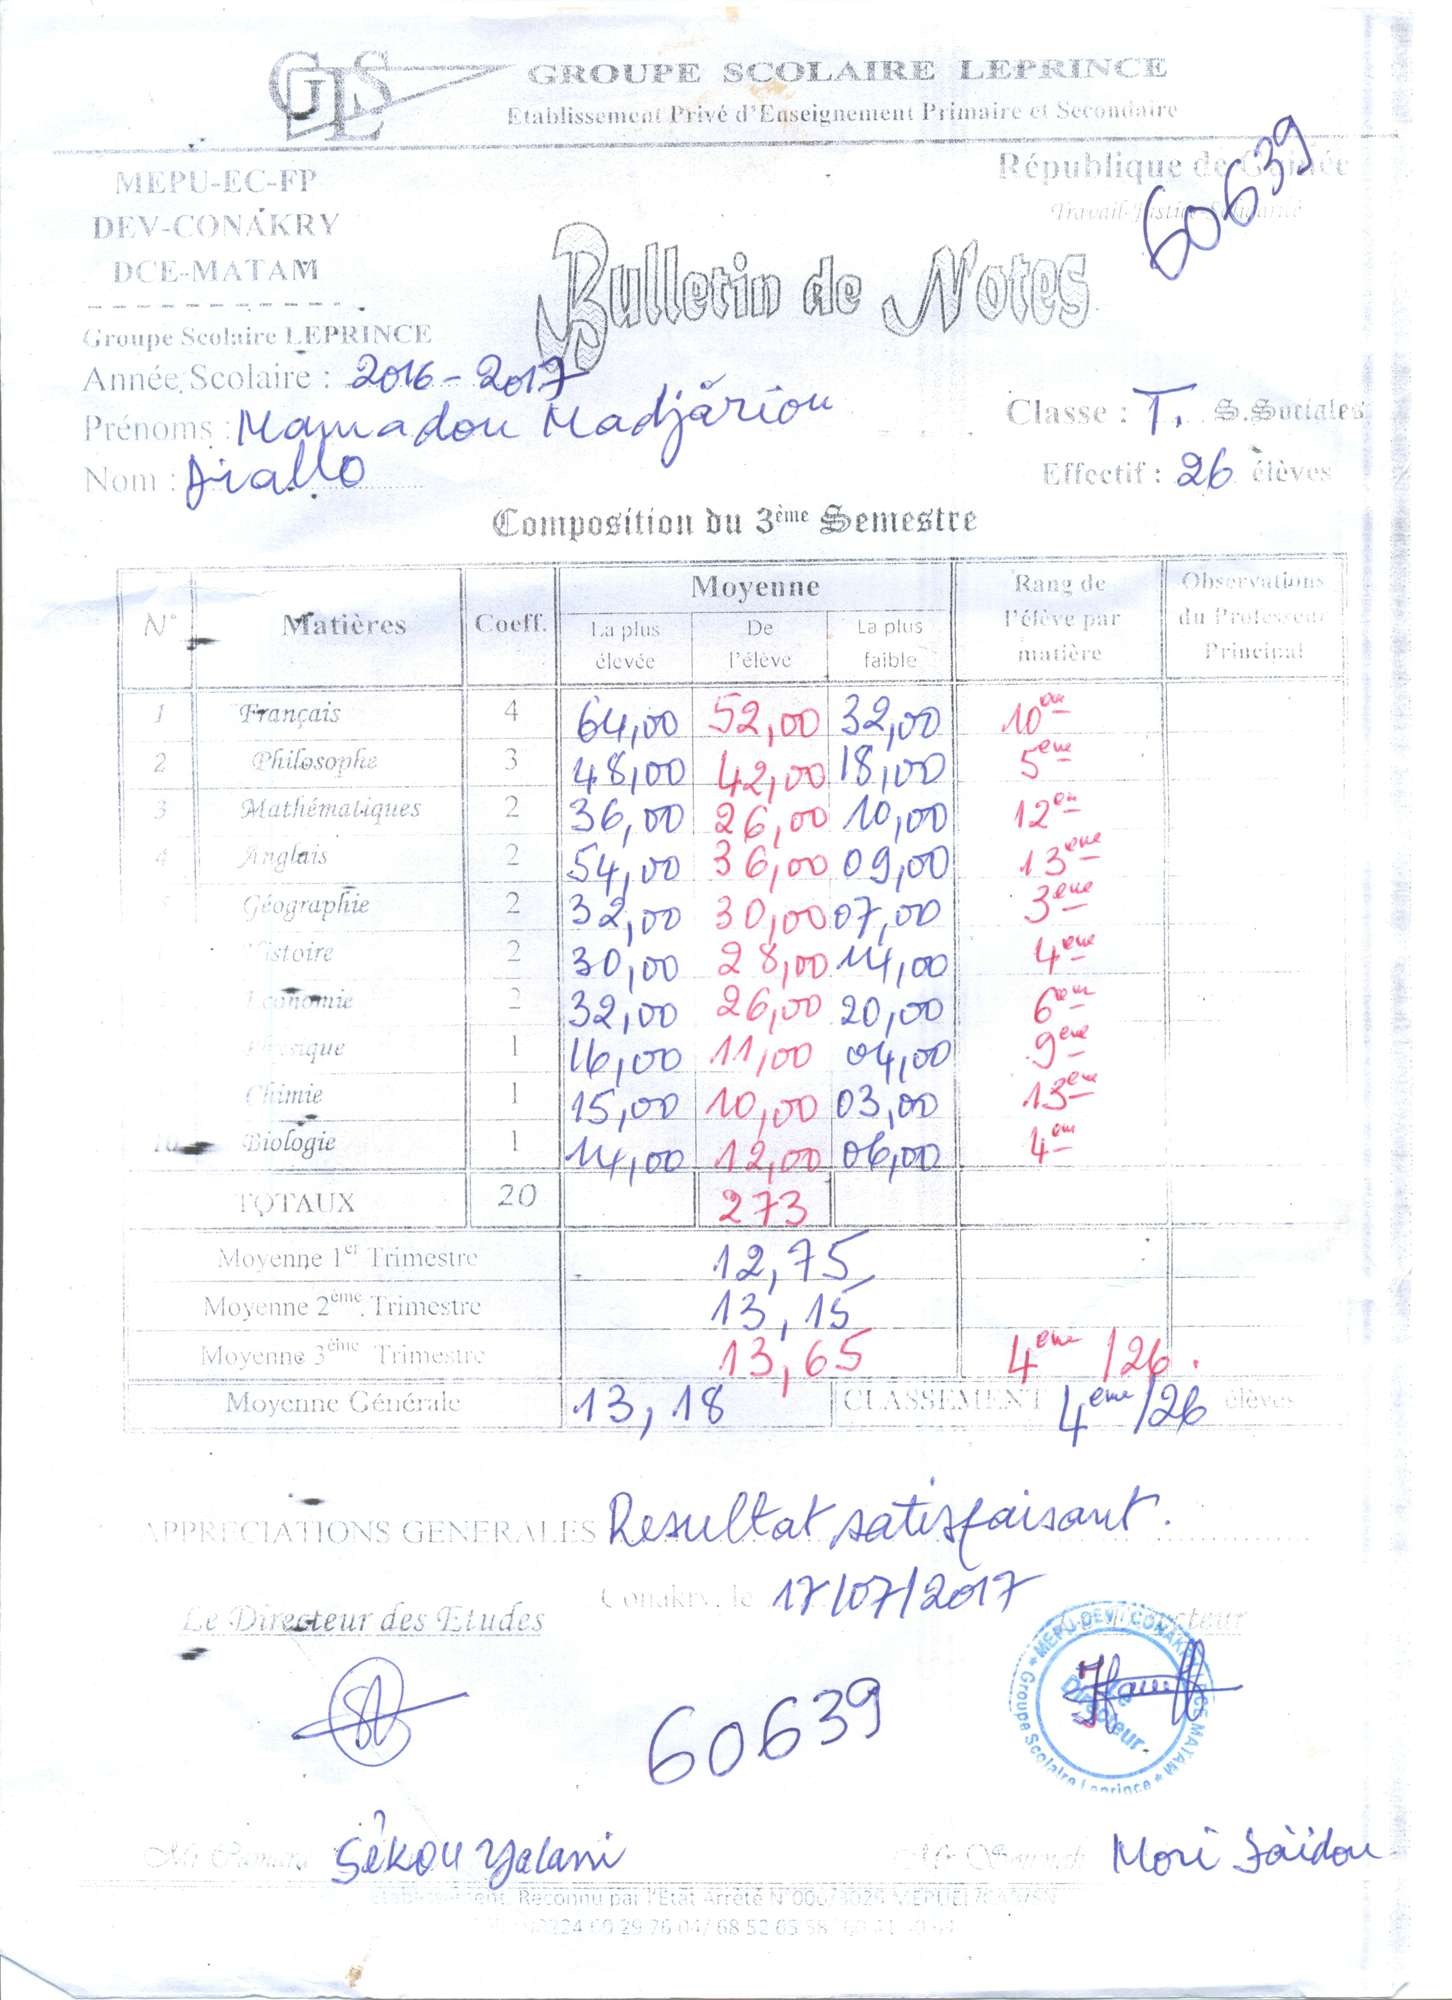 GLS
GROUPE SCOLAIRE LEPRINCE
Etablissement Privé d'Enseignement Primaire et Secondaire
MEPU-EC-FP
DEV-CONAKRY
DCE-MATAM
République de Guinée
Travail-Justice-Solidarité
60639
Bulletin de Notes
Groupe Scolaire LEPRINCE
Année Scolaire : 2016-2017
Prénoms : Mamadou Madjàriou
Classe : T. S.Sociales
Nom : Diallo
Effectif : 26 élèves
Composition du 3ème Semestre
N° Matières Coeff. Moyenne Rang de l'élève par matière Observations du Professeur Principal
La plus élevée De l'élève La plus faible
1 Français 4 64,00 52,00 32,00 10em
2 Philosophe 3 48,00 42,00 18,00 5eme
3 Mathématiques 2 36,00 26,00 10,00 12em
4 Anglais 2 54,00 36,00 09,00 13eme
Géographie 2 32,00 30,00 07,00 3eme
Histoire 2 30,00 28,00 14,00 4eme
Economie 2 32,00 26,00 20,00 6em
Physique 1 16,00 11,00 04,00 9eme
Chimie 1 15,00 10,00 03,00 13eme
10 Biologie 1 14,00 12,00 06,00 4em
TOTAUX 20 273
Moyenne 1er Trimestre 12,75
Moyenne 2ème Trimestre 13,15
Moyenne 3ème Trimestre 13,65 4eme /26.
Moyenne Générale 13,18 CLASSEMENT 4eme/26 élèves
APPRECIATIONS GENERALES Resultat satisfaisant.
Conakry, le 17/07/2017
Le Directeur des Etudes
MEPU-DEV/CONAKRY DCE MATAM
Groupe Scolaire Leprince
Le Directeur
60639
Mr Camara Sékou Yalani
Mr Mori Saïdou
Etablissement Reconnu par l'Etat Arrêté